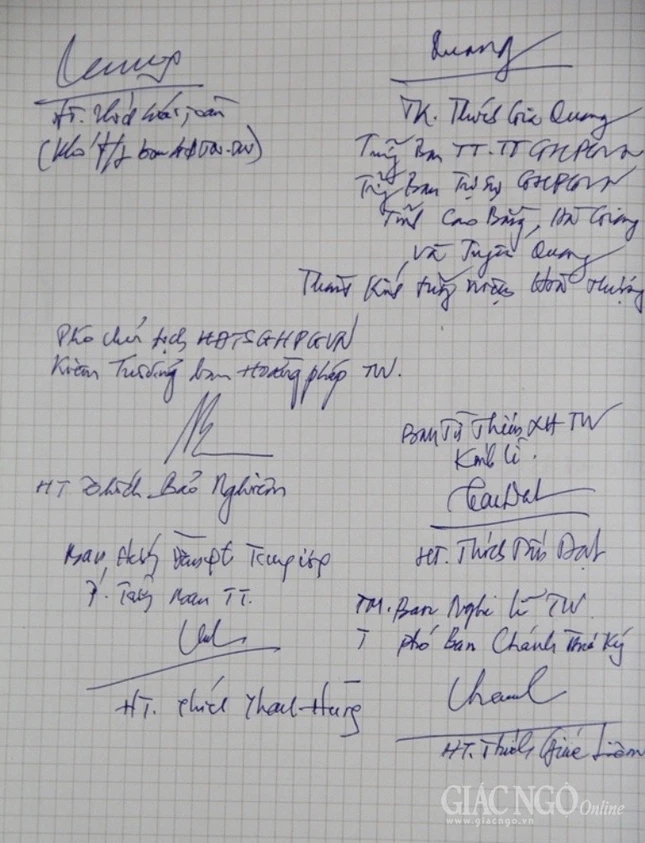 HT. Thích
(Phó T/g ban
Quang
TK. Thích Gia Quang
Trưởng Ban TT.TT GHPGVN
Trưởng Ban Trị sự GHPGVN
Tỉnh Cao Bằng, Hà Giang
và Tuyên Quang
Thành Kính tưởng niệm Hòa thượng
Phó chủ tịch HĐTSGHPGVN
Kiêm Trưởng ban Hoằng pháp TW.
HT Thích Bảo Nghiêm
Ban Từ Thiện XH TW
Kính lễ.
HT. Thích Đạt
Ban Trung ương
P. TT.
HT. Thích Thanh Hùng
TM. Ban Nghi lễ TW
T phó Ban Chánh thư Ký
HT. Thích Giác Liêm
GIÁC NGỘ Online
www.giacngo.vn